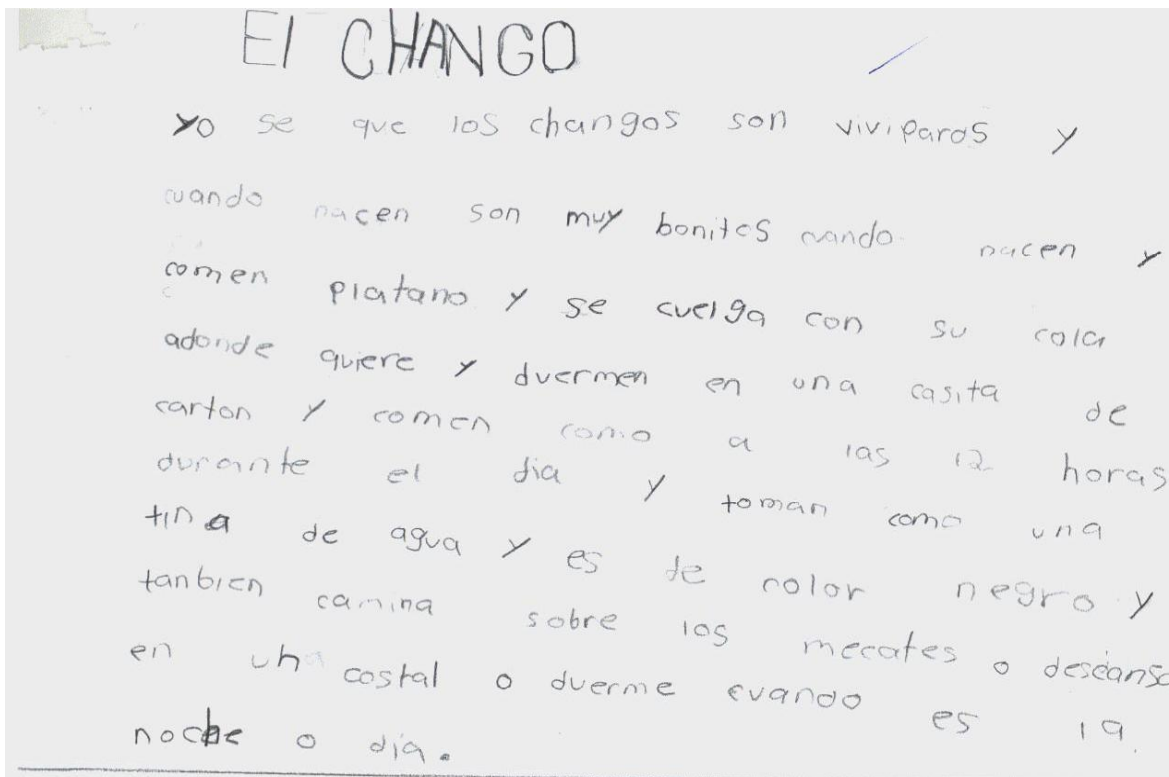 El CHANGO
yo se que los changos son viviparos y
cuando nacen son muy bonitos cuando nacen y
comen platano y se cuelga con su cola
adonde quiere y duermen en una casita de
carton y comen como a las 12 horas
durante el dia y toman como una
tina de agua y es de color negro y
tanbien camina sobre los mecates o descansa
en un costal o duerme cuando es la
noche o dia.